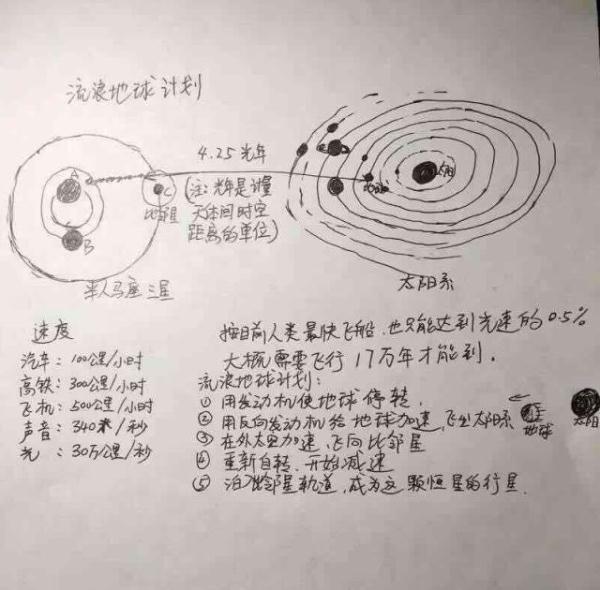 流浪地球计划
4.25光年
(注:光年是计量
天体间时空
距离的单位)
A
B
C
比邻星
半人马座三星
地球
太阳
太阳系
速度
汽车:100公里/小时
高铁:300公里/小时
飞机:500公里/小时
声音:340米/秒
光:30万公里/秒
按目前人类最快飞船,也只能达到光速的0.5%
大概需要飞行17万年才能到。
流浪地球计划:
① 用发动机使地球停转,
② 用反向发动机给地球加速,飞出太阳系
③ 在外太空加速,飞向比邻星
④ 重新自转,开始减速
⑤ 泊入比邻星轨道,成为这颗恒星的行星.
地球
太阳